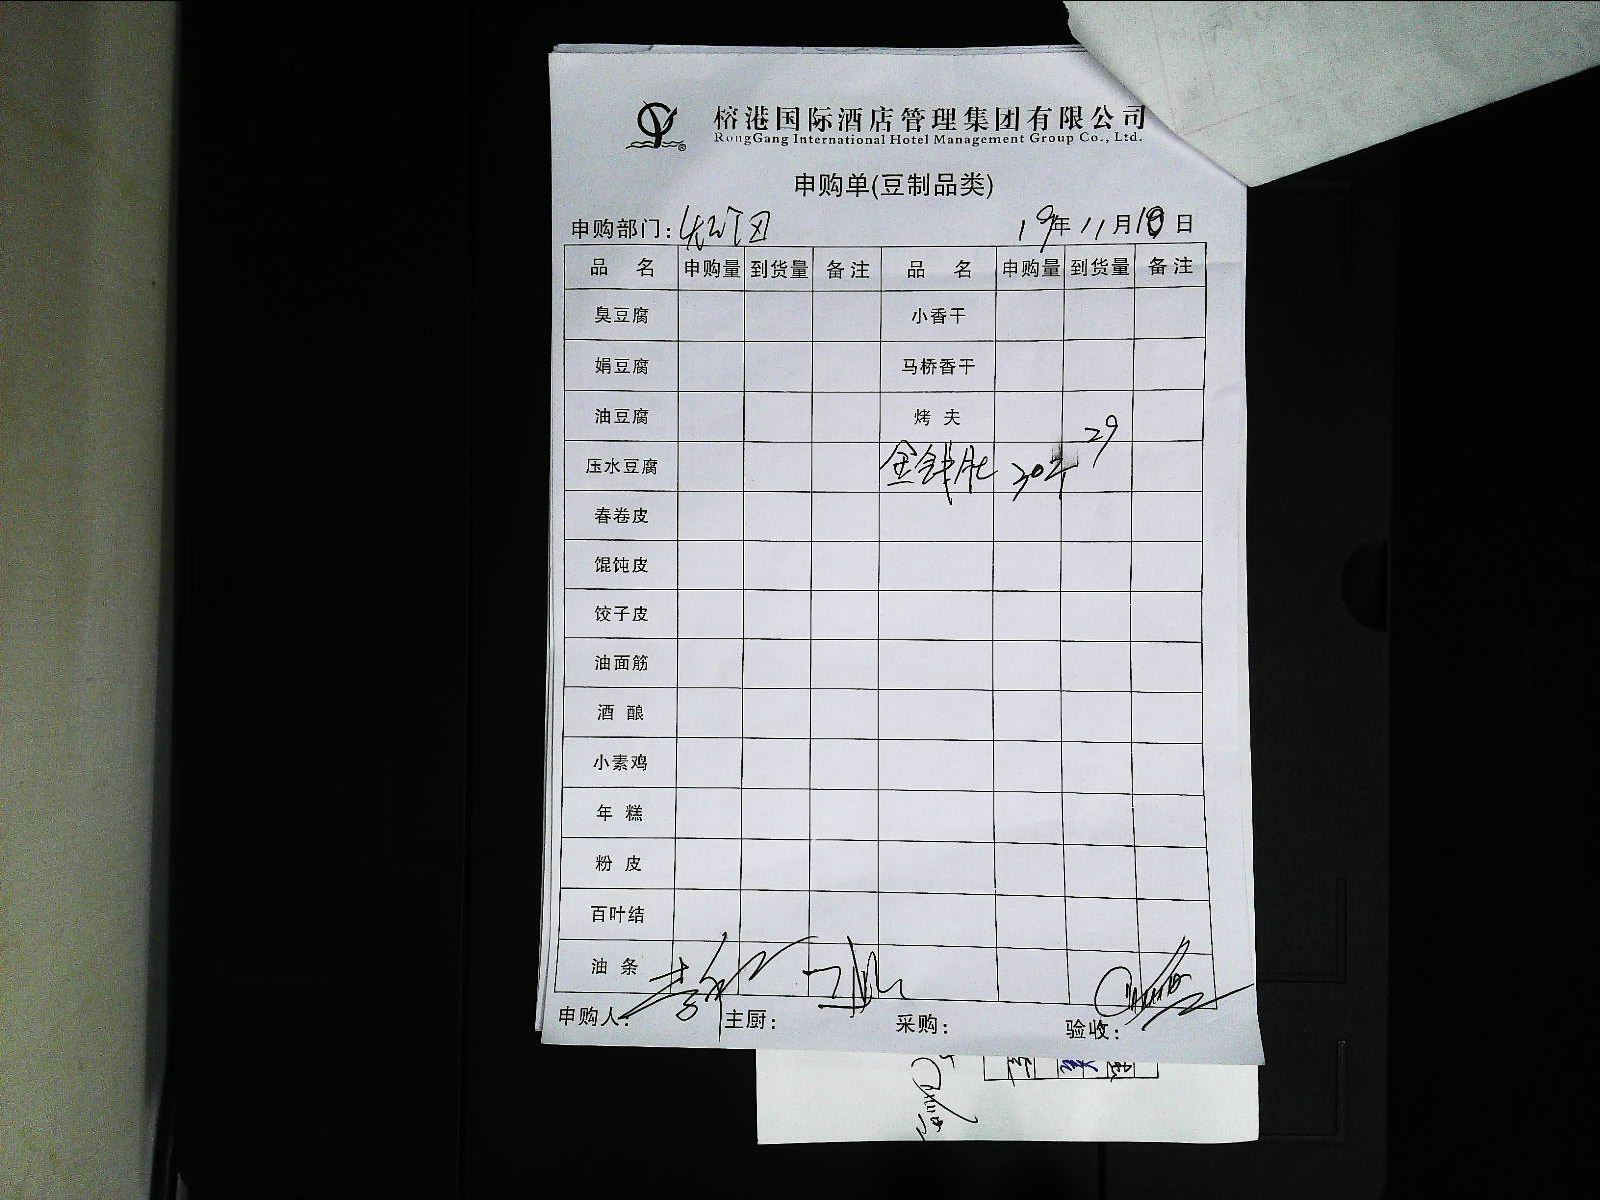 榕港国际酒店管理集团有限公司
RongGang International Hotel Management Group Co., Ltd.
申购单(豆制品类)
申购部门: 19年11月18日
品 名 申购量 到货量 备注 品 名 申购量 到货量 备注
臭豆腐 小香干
娟豆腐 马桥香干
油豆腐 烤 夫
压水豆腐 金钱肚 30 29
春卷皮
馄饨皮
饺子皮
油面筋
酒 酿
小素鸡
年 糕
粉 皮
百叶结
油 条
申购人: 主厨: 采购: 验收: